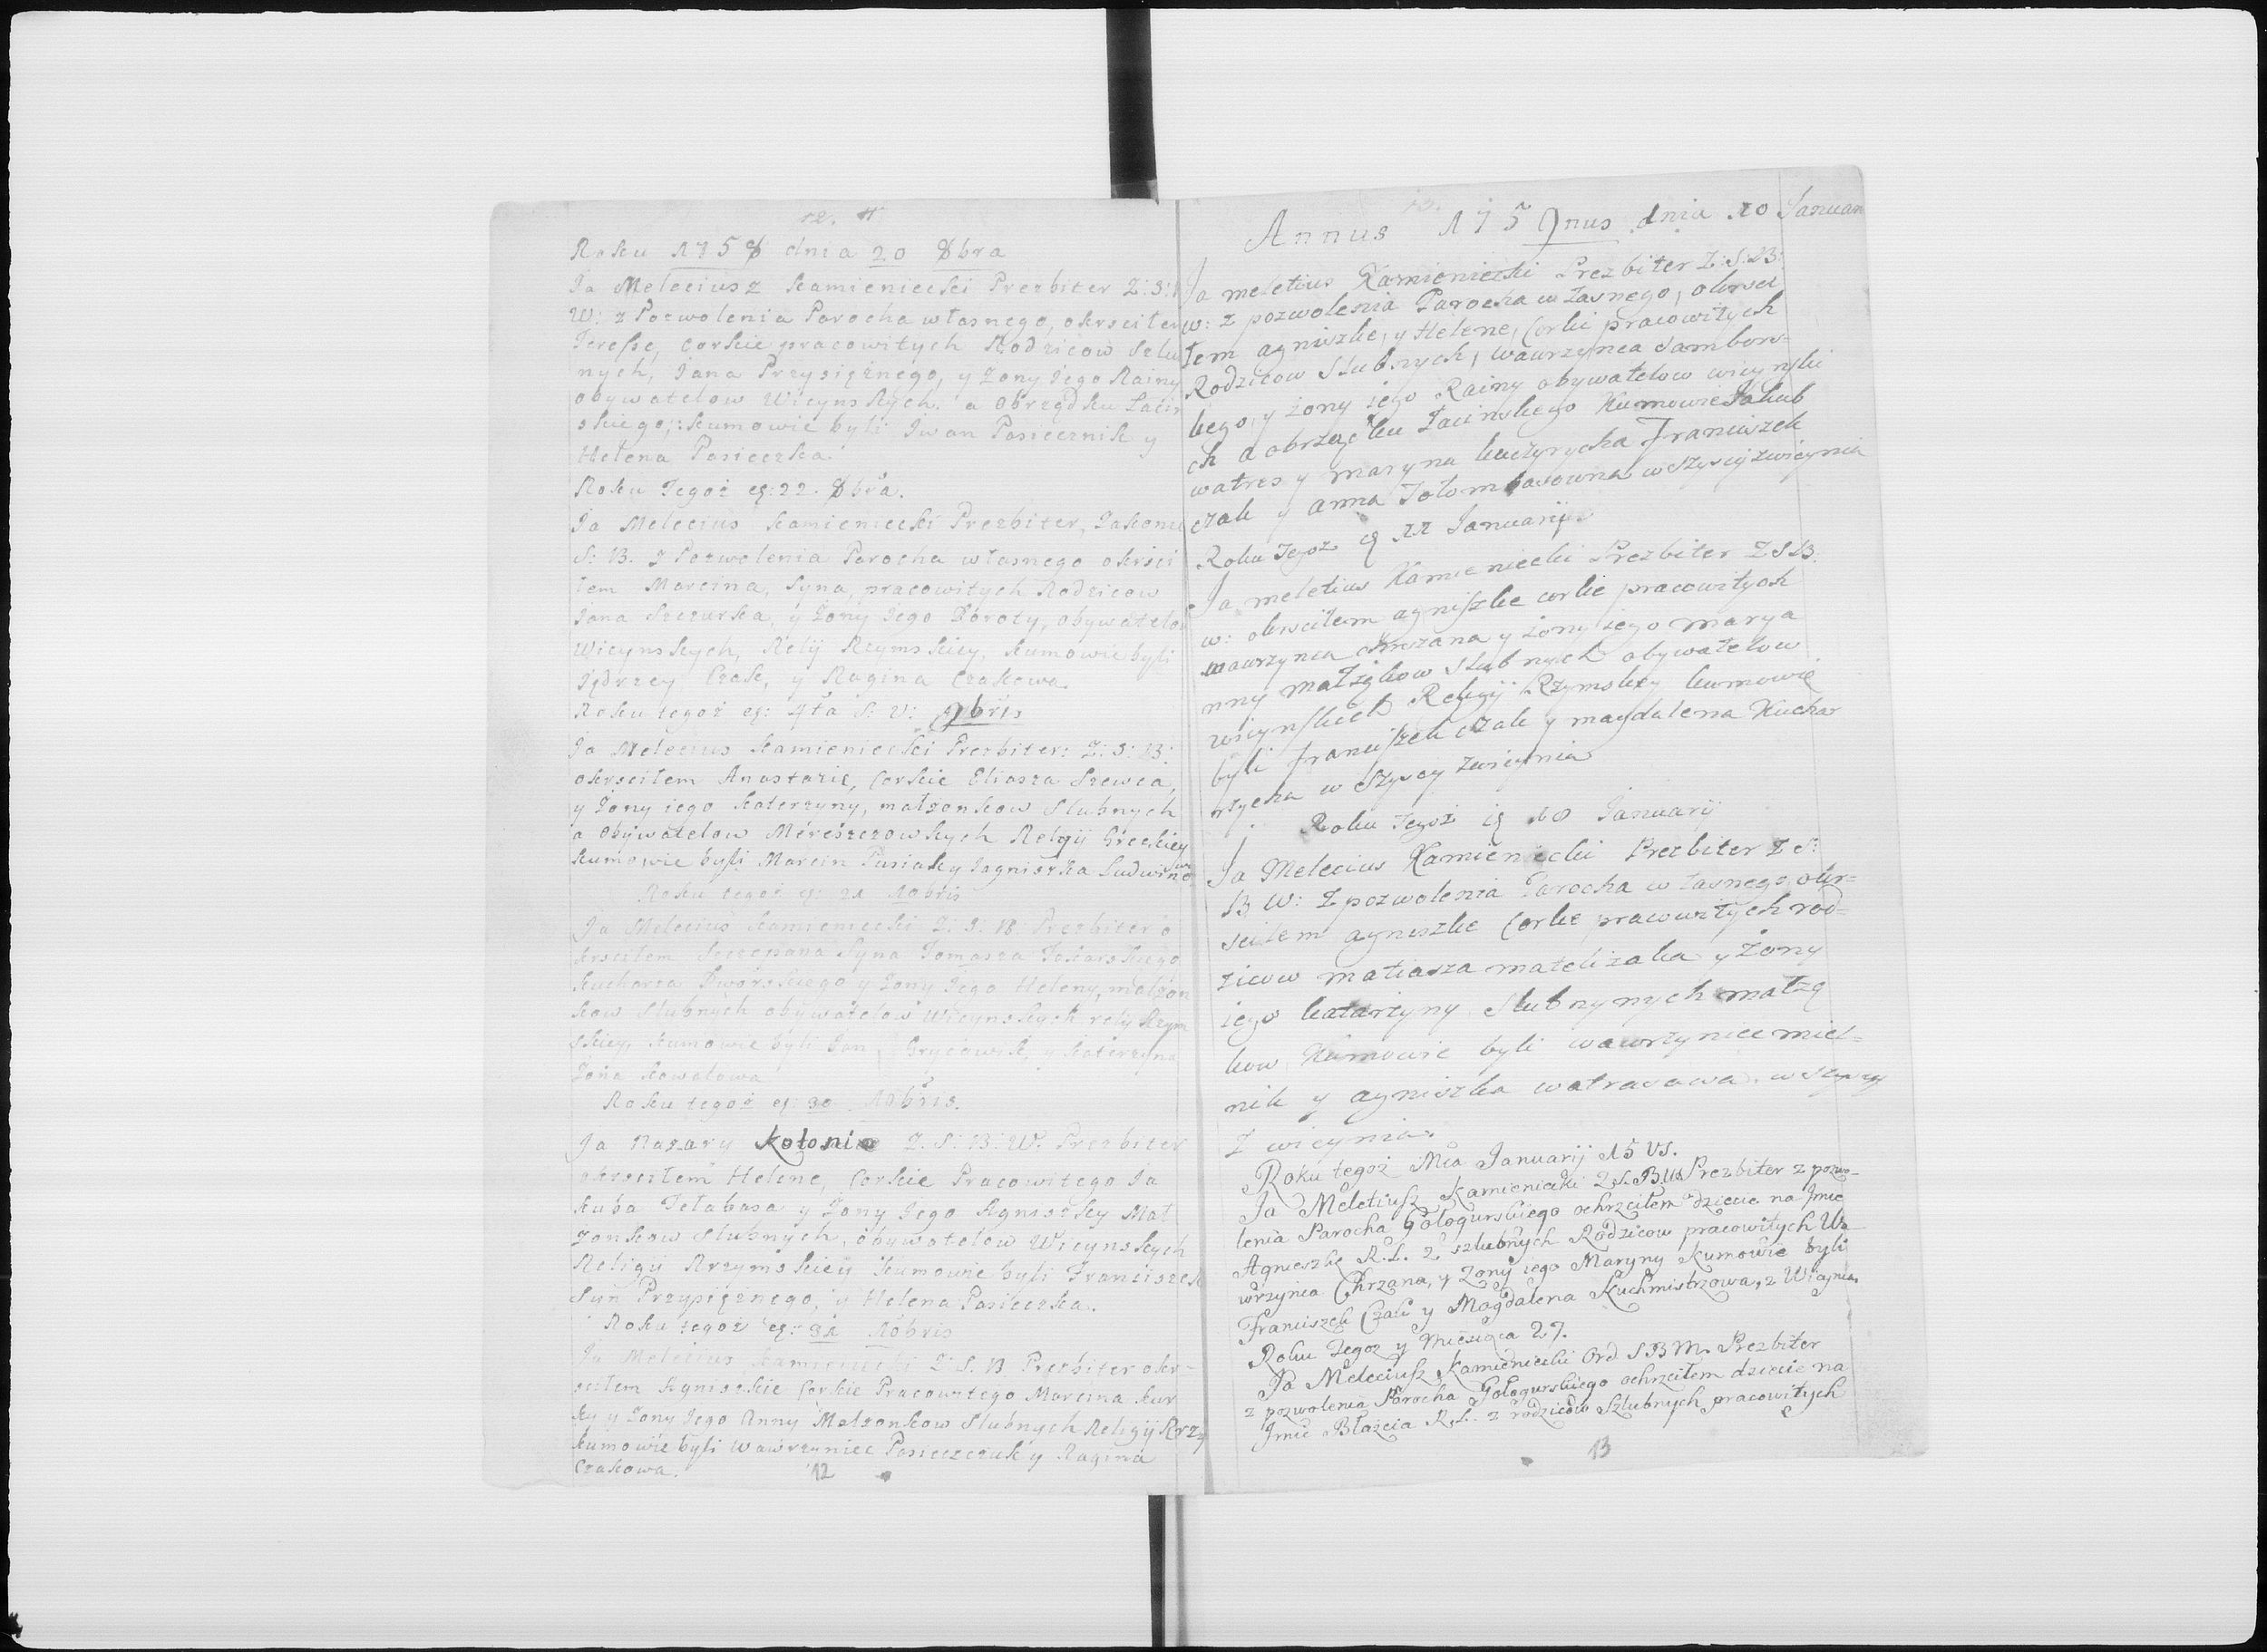 12.
Roku 1758 dnia 20 8bra
Ja Meleciusz Kamieniecki Prezbiter Z: S:
W: z Pozwolenia Parocha własnego, okrsciłem
Teresſę, Corkie pracowitych Rodzicow Szlu
nych, Jana Przysiężnego, y Zony Jego Rainy
obywatelow Wicynskych, a obrządku Łacin
skiego,: kumowie byli Iwan Pasiecznik y
Helena Pasieczka.
Roku Tegoż eg: 22. 8bra.
Ja Melecius Kamieniecki Prezbiter, Zakonu
S: B. z Pozwolenia Parocha własnego okrsci
łem Marcina, Syna, pracowitych Rodzicow
Jana Szczurka, y Zony Jego Doroty, obywatelow
Wicynskych, Relij Rzymskiey, kumowie byli
Jędrzey Czak, y Ragina Czakowa.
Roku tegoż eg: 4ta S: V: 9bris
Ja Melecius Kamieniecki Prezbiter: Z: S: B:
okrsciłem Anastazie, Corkie Eliasza Szewca,
y Zony iego Katerzyny, małzonkow Slubnych
a obywatelow Méreszczowskych Religii Gréckiey
kumowie byli Marcin Pusiaky Jagniszka Ludwino
Roku tegoż eg: 21 10bris
Ja Melecius Kamieniecki Z: S: B: Prezbiter o
krsciłem Szczepana Syna Tomasza Tokarskiego
Kucharza Dworskiego y Zony Jego Heleny, małzon
kow Slubnych obywatelow Wicynskych relij Rzym
skiey, kumowie byli Jan Gryćowik, y Katerzyna
Zona Kowalowa
Roku tegoż eg: 30 10bris.
Ja Nazary Kołoni Z. S: B: W. Prezbiter
okrsciłem Helene, Corkie Pracowitego Ja
kuba Tełabasa y Zony Jego Agniszky Mał
zonkow Slubnych, obywatelow Wicynskych
Religii Rrzymskiey Kumowie byli Franciszek
Syn Przysięznego, y Helena Pasieczka.
Roku tegoż eg: 31 10bris
Ja Melecius Kamieniecki Z: S. B Prezbiter okr-
sciłem Agniszkie Corkie Pracowitego Marcina Kur
ky y Zony Jego Anny Małzonkow Slubnych Religij Rrzy
kumowie byli Wawrzyniec Pasieczczuk y Ragina
Czakowa.
12
Annus 175 9nus dnia 10 Januar
Ja meletius Kamieniecki Prezbiter Z: S: B:
w: z pozwolenia Parocha własnego, okrsci
łem agniszke, y Helene, Corki pracowitych
Rodzicow Slubnych, wawrzynca Sambors-
kego, y żony iego Rainy obywatelow wicynski
ch a obrządku Łacinskego Kumowie Jakub
watras y maryna kuczyrycha Franciszek
czak y anna Tołombasowna wszyscy zwicynia
Roku Tegoz eg 11 Januarij
Ja meletius Kamieniecki Prezbiter Z S B
w: okrsciłem agniſzke corke pracowitych
wawrzynca chrzana y żony iego marya
nny małżąkow slubnych obywatelow
wicynſkich Religij Rzymskey kumowie
byli franciſzek czak y magdalena Kuchar
rzycha wszyscy zwicynia
Roku Tegoż eg 10 Januarij
Ja Melecius Kamieniecki Prezbiter Z S:
B W: z pozwolenia Parocha własnego okr=
sciłem agniszke Corke pracowitych rod=
zicow matiasza matelizaka y żony
iego katarzyny slubnynych małzą
kow Kumowie byli wawrzyniec miel=
nik y agniszka watrasowa. wszyscy
z wicynia.
Roku tegoż Mca Januarij 15 VS.
Ja Meletiuſz Kamieniecki Z. S. B W Prezbiter z pozwo-
lenia Parocha Gologurskiego ochrzciłem dziecie na Jmie
Agnieszke R. L. z szlubnych Rodzicow pracowitych Wa
wrzynca Chrzana, y Zony iego Maryny Kumowie byli
Franciszek Czak y Magdalena Kuchmistrzowa, z Wicynia.
Roku Tegoz y Miesiąca 27.
Ja Meleciuſz Kamieniecki Ord S B M. Prezbiter
z pozwolenia Parocha Gologurskiego ochrzciłem dziecie na
Jmie Błażeia R. L. z rodzicow Szlubnych pracowitych
13